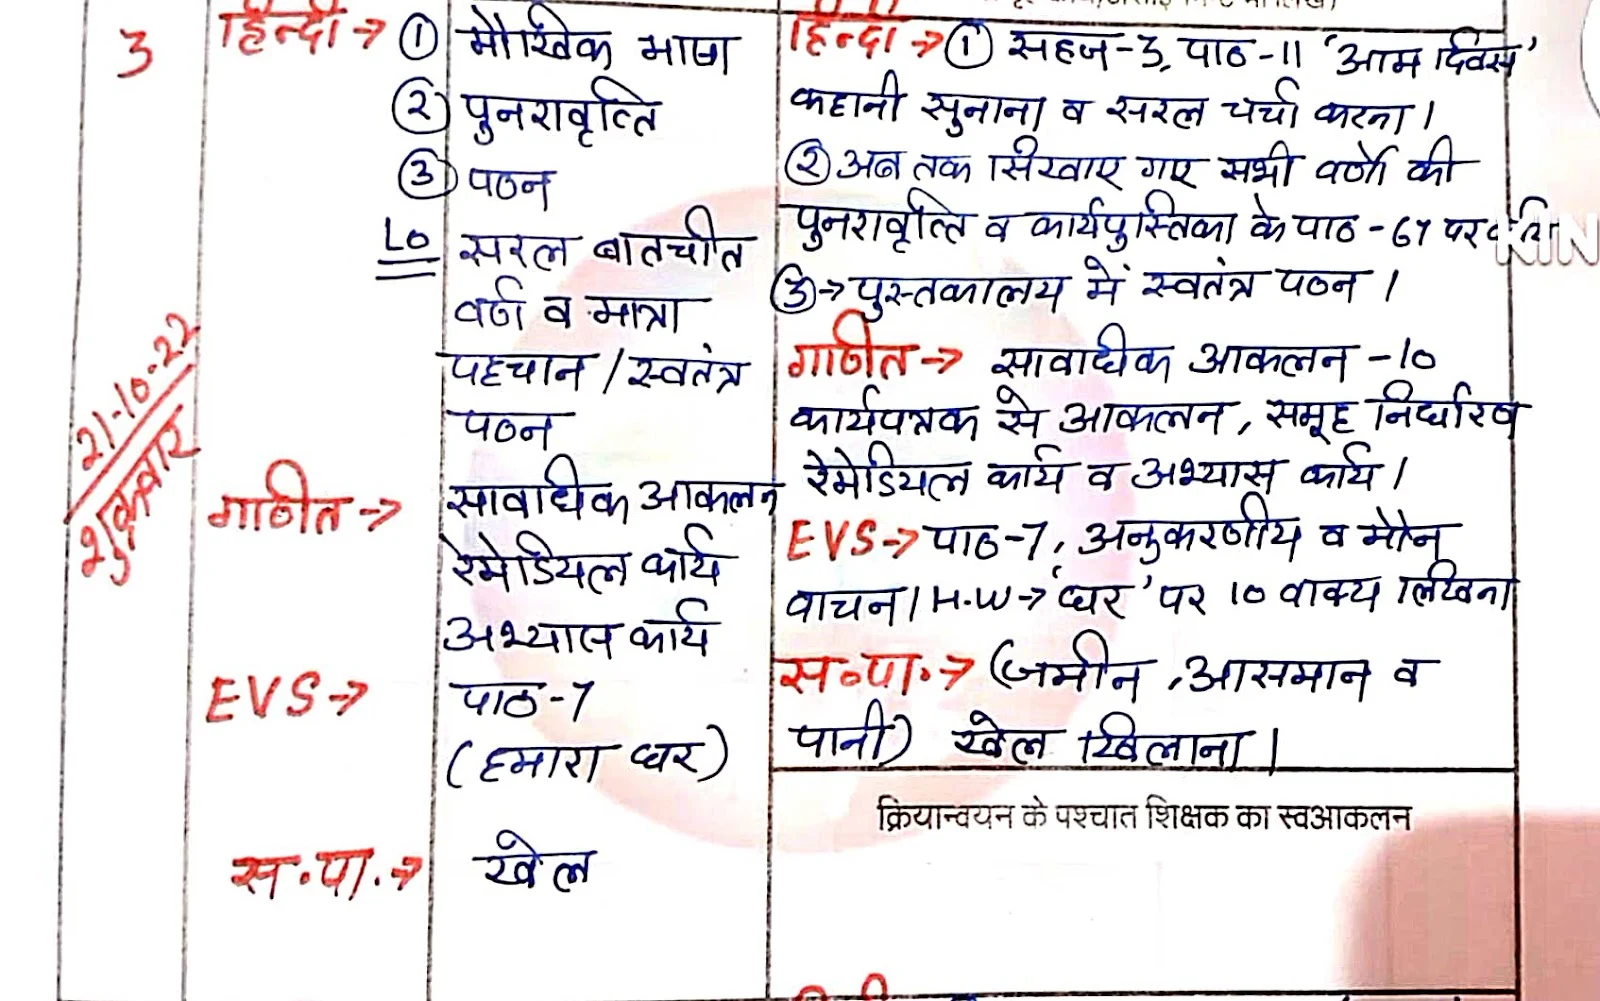 3
21-10-22
शुक्रवार
हिन्दी → ① मौखिक भाषा
② पुनरावृत्ति
③ पठन
LO सरल बातचीत
वर्ण व मात्रा
पहचान / स्वतंत्र
पठन
गणित → सावधिक आकलन
रेमेडियल कार्य
अभ्यास कार्य
EVS → पाठ-7
(हमारा घर)
स.पा. → खेल
हिन्दी → ① सहज-3, पाठ-11 'आम दिवस'
कहानी सुनाना व सरल चर्चा करना।
② अब तक सिखाए गए सभी वर्णों की
पुनरावृत्ति व कार्यपुस्तिका के पाठ - 67 पर
③ → पुस्तकालय में स्वतंत्र पठन।
गणित → सावधिक आकलन -10
कार्यपत्रक से आकलन, समूह निर्धारण
रेमेडियल कार्य व अभ्यास कार्य।
EVS → पाठ-7, अनुकरणीय व मौन
वाचन। H.W → 'घर' पर 10 वाक्य लिखना
स.पा. → (जमीन, आसमान व
पानी) खेल खिलाना।
क्रियान्वयन के पश्चात शिक्षक का स्वआकलन